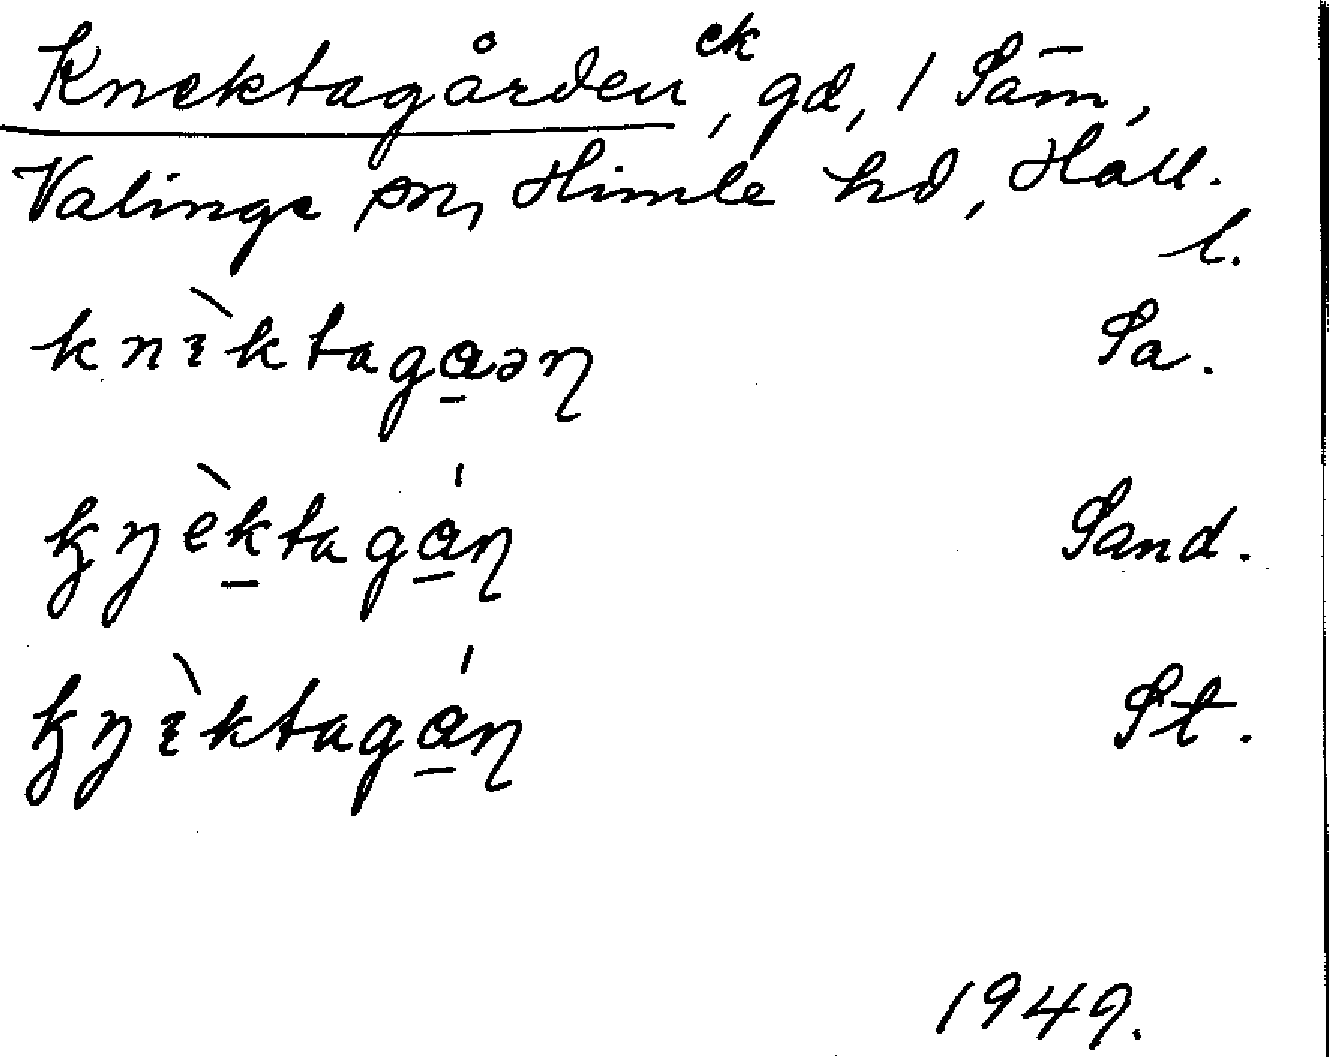 Knektagården ek, gd, 1 Säm,
Valinge sn, Himle hd, Hall.
l.
knèktagaən Sa.
knèktagán Sand.
knèktagán St.
1949.